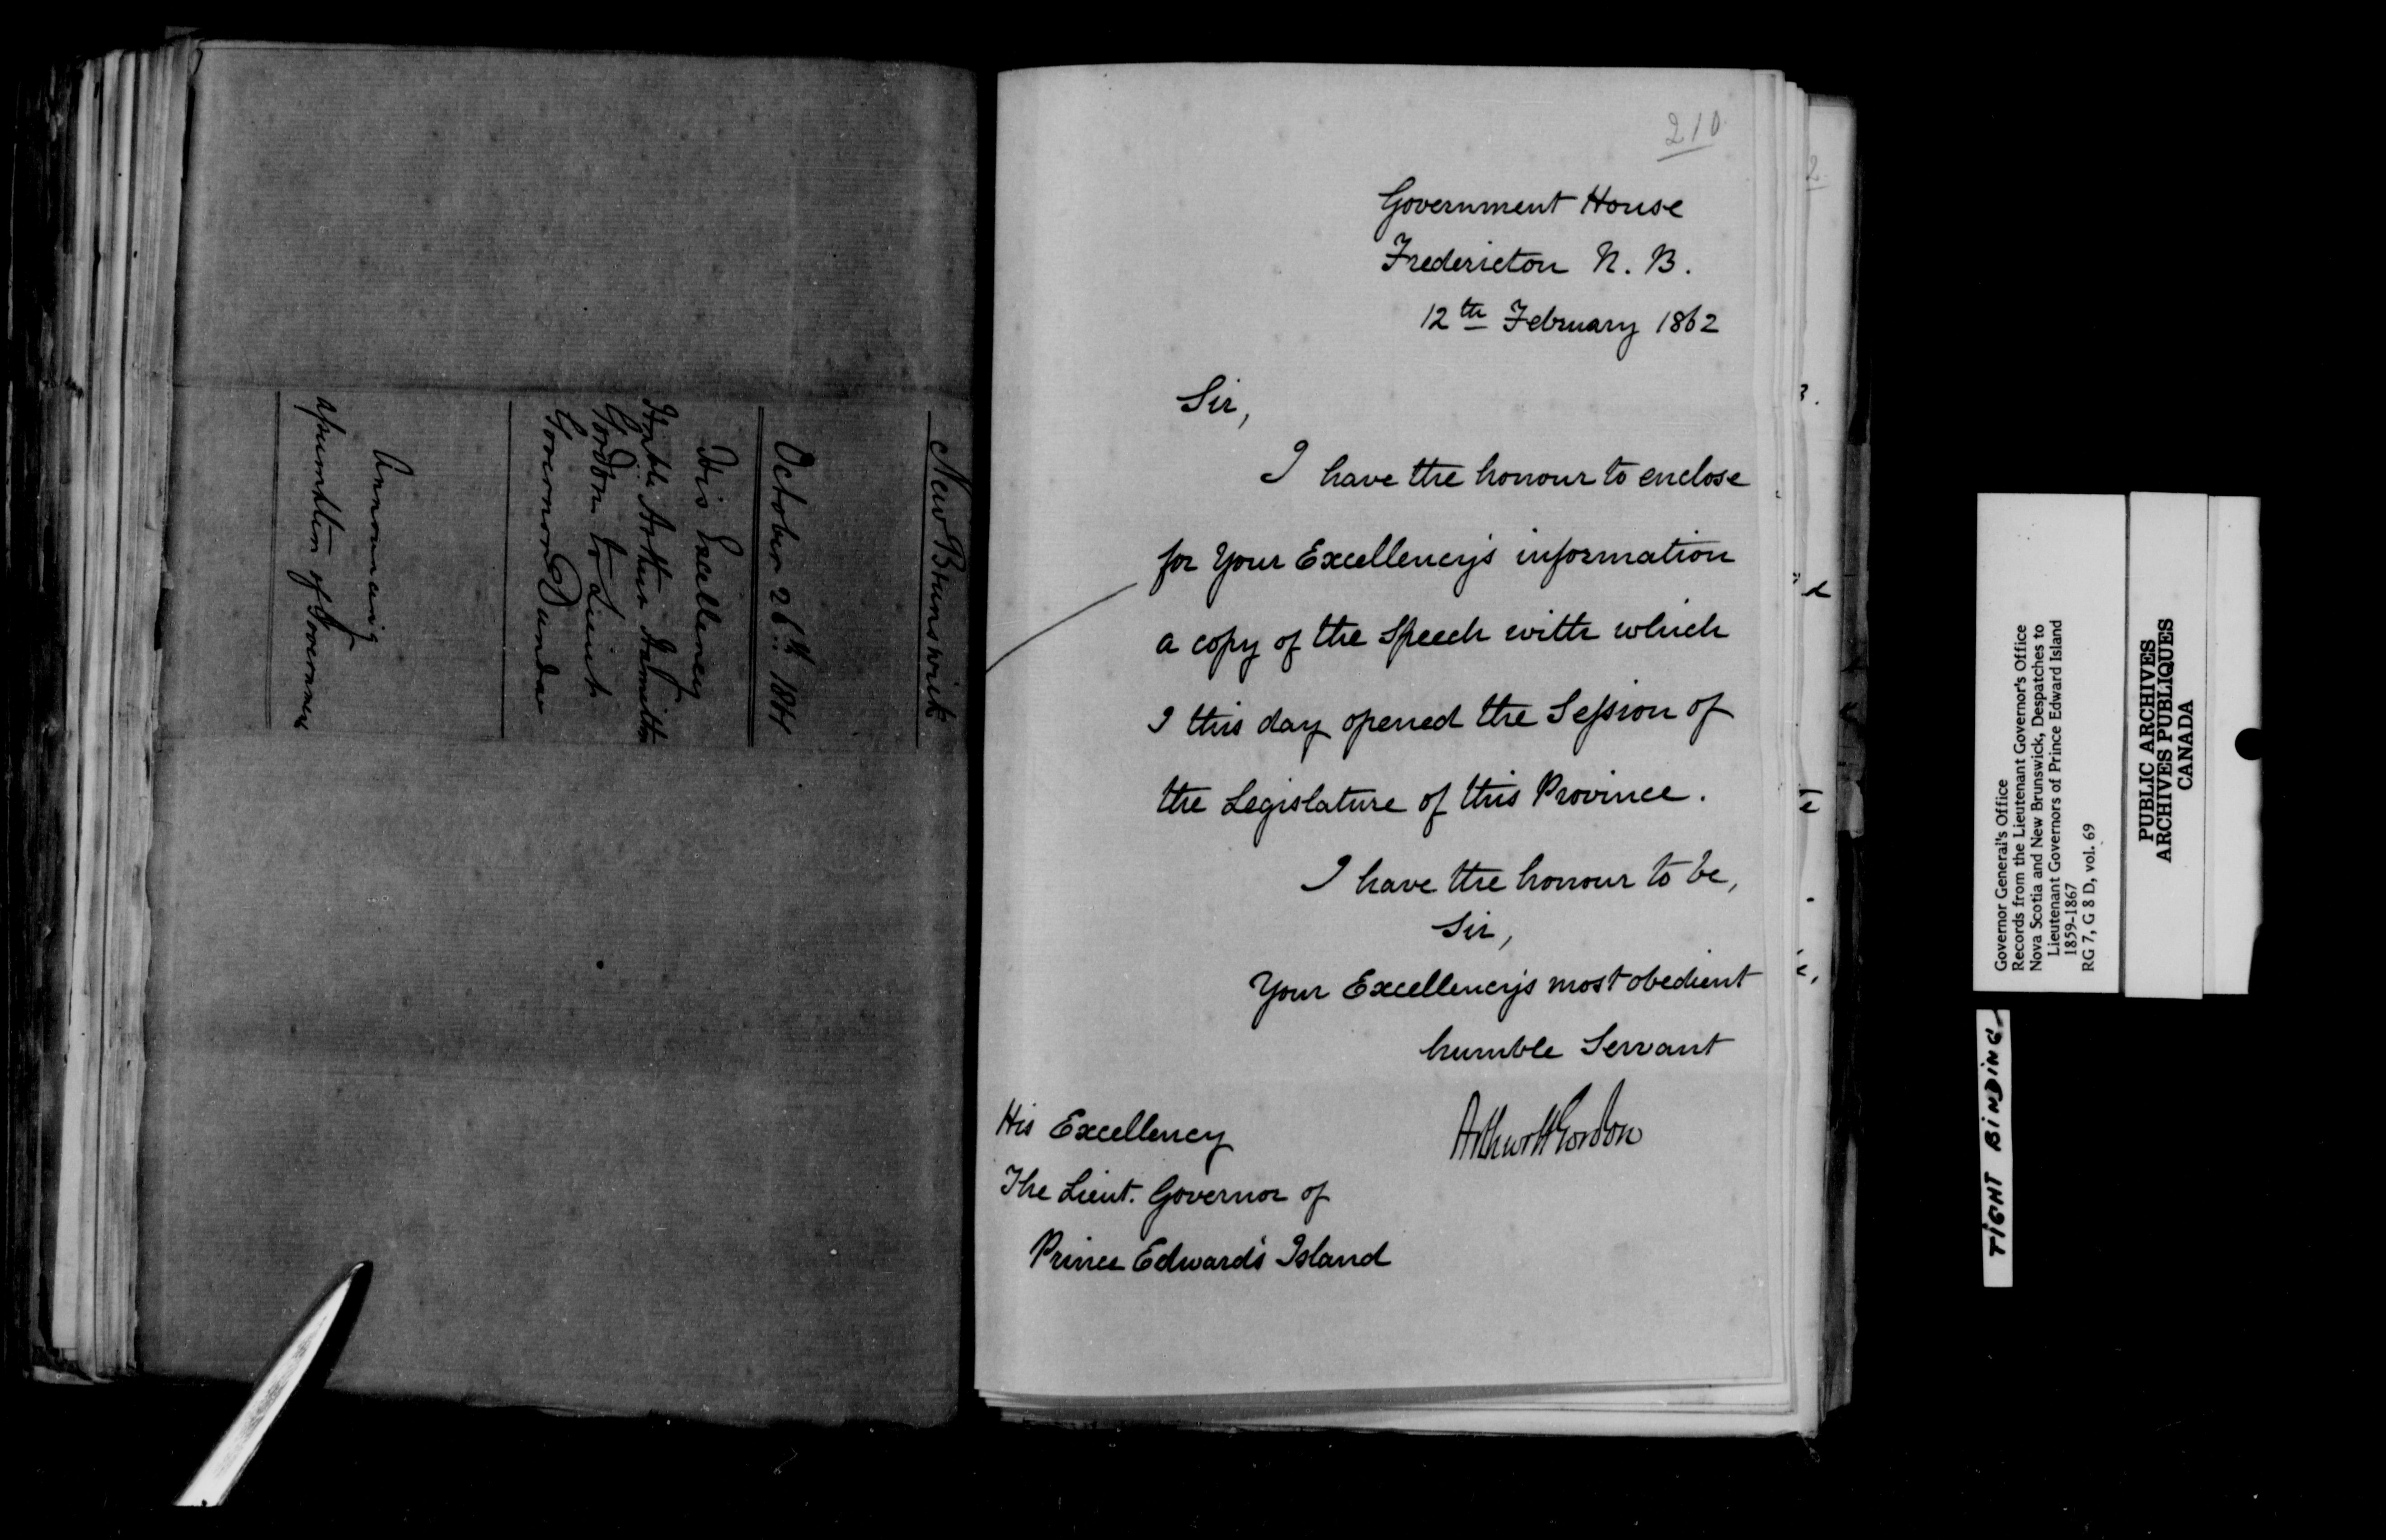 New Brunswick
October 26th 1861
His Excellency
Honble Arthur Hamilton
Gordon to Lieut.
Governor Dundas
Announcing
assumption of Government
210
Government House
Fredericton N. B.
12th February 1862
Sir,
I have the honour to enclose
for Your Excellency's information
a copy of the Speech with which
I this day opened the Session of
the Legislature of this Province.
I have the honour to be,
Sir,
Your Excellency's most obedient
humble Servant
Arthur H Gordon
His Excellency
The Lieut. Governor of
Prince Edward's Island
Governor General's Office
Records from the Lieutenant Governor's Office
Nova Scotia and New Brunswick, Despatches to
Lieutenant Governors of Prince Edward Island
1859-1867
RG 7, G 8 D, vol. 69
PUBLIC ARCHIVES
ARCHIVES PUBLIQUES
CANADA
TIGHT BINDING